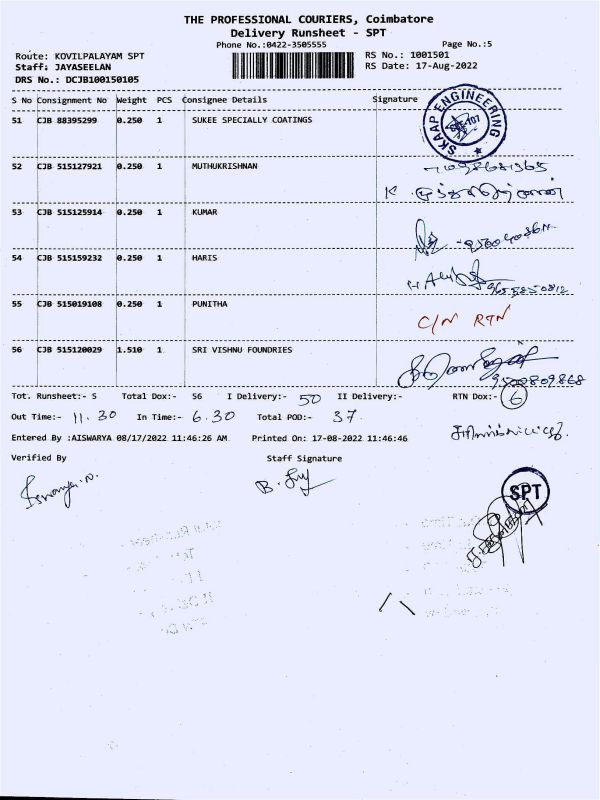 THE PROFESSIONAL COURIERS, Coimbatore
Delivery Runsheet - SPT
Phone No.:0422-3505555 Page No.:5
Route: KOVILPALAYAM SPT RS No.: 1001501
Staff: JAYASEELAN RS Date: 17-Aug-2022
DRS No.: DCJB100150105
S No Consignment No Weight PCS Consignee Details Signature
51 CJB 88395299 0.250 1 SUKEE SPECIALLY COATINGS
SKAAP ENGINEERING
52 CJB 515127921 0.250 1 MUTHUKRISHNAN
K
53 CJB 515125914 0.250 1 KUMAR
54 CJB 515159232 0.250 1 HARIS
9655850812
55 CJB 515019108 0.250 1 PUNITHA C/N RTN
56 CJB 515120029 1.510 1 SRI VISHNU FOUNDRIES
9500809868
Tot. Runsheet:- 5 Total Dox:- 56 I Delivery:- 50 II Delivery:- RTN Dox:- 6
Out Time:- 11.30 In Time:- 6.30 Total POD:- 37
Entered By :AISWARYA 08/17/2022 11:46:26 AM Printed On: 17-08-2022 11:46:46
Verified By Staff Signature
SPT